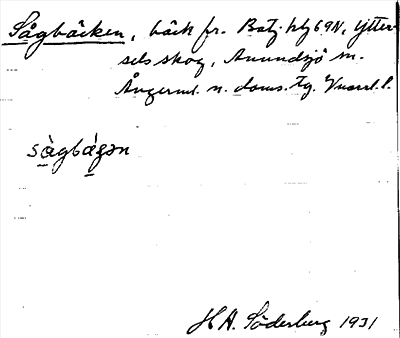 Sågbäcken, bäck fr. Batj. htg 69N, Ytter-
sels skog, Anundsjö sn.
Ångerml. n. doms. tg. Vnorrl. l.
sàgbágən
H A. Söderberg 1931